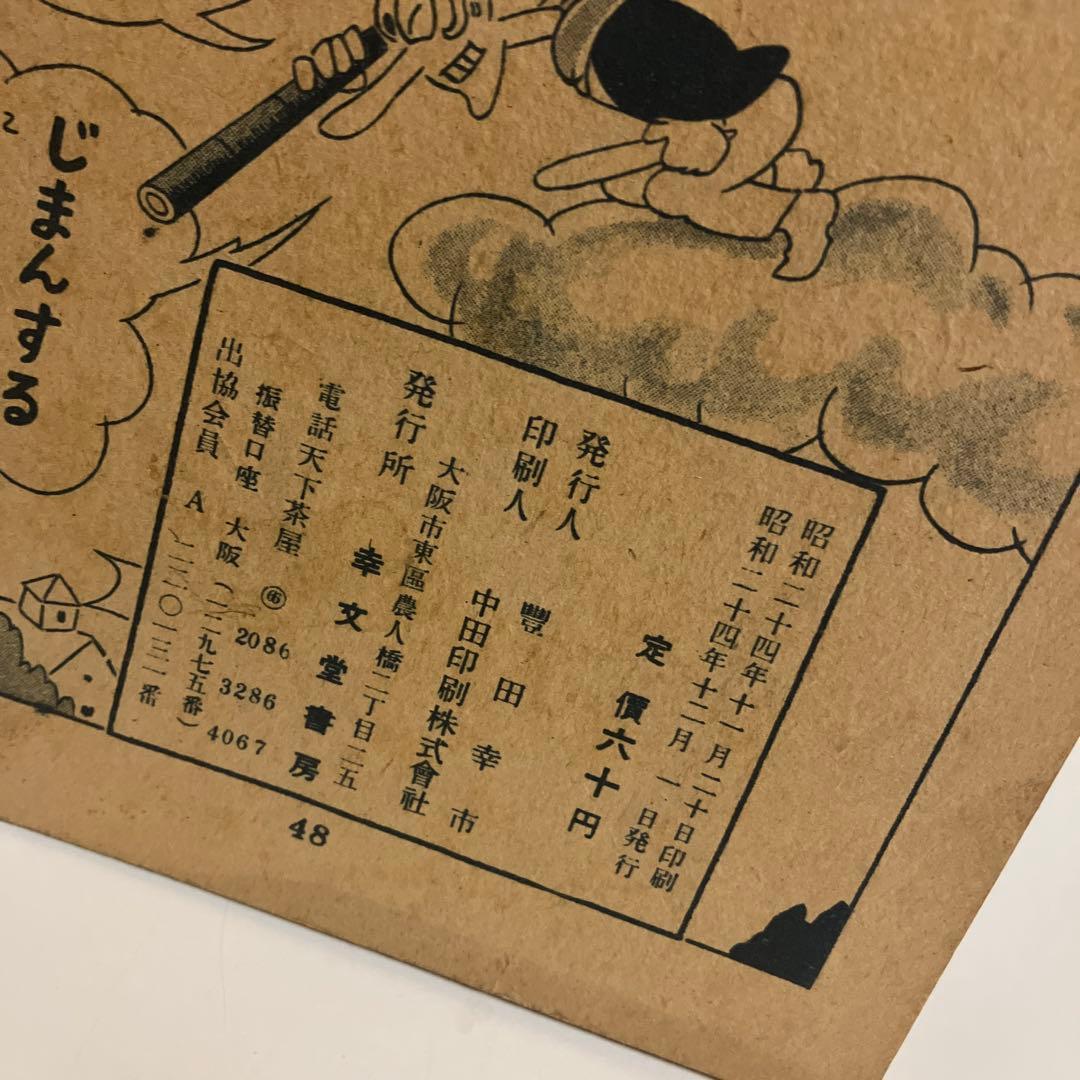 昭和二十四年十一月二十日印刷
昭和二十四年十二月一日発行
定價六十円
発行人 豐田幸市
印刷人 中田印刷株式會社
大阪市東區農人橋二丁目二五
発行所 幸文堂書房
電話天下茶屋 2086 3286 4067
振替口座 大阪(二二九七五番)
出協会員 A 二二〇一三一番
じまんする
48